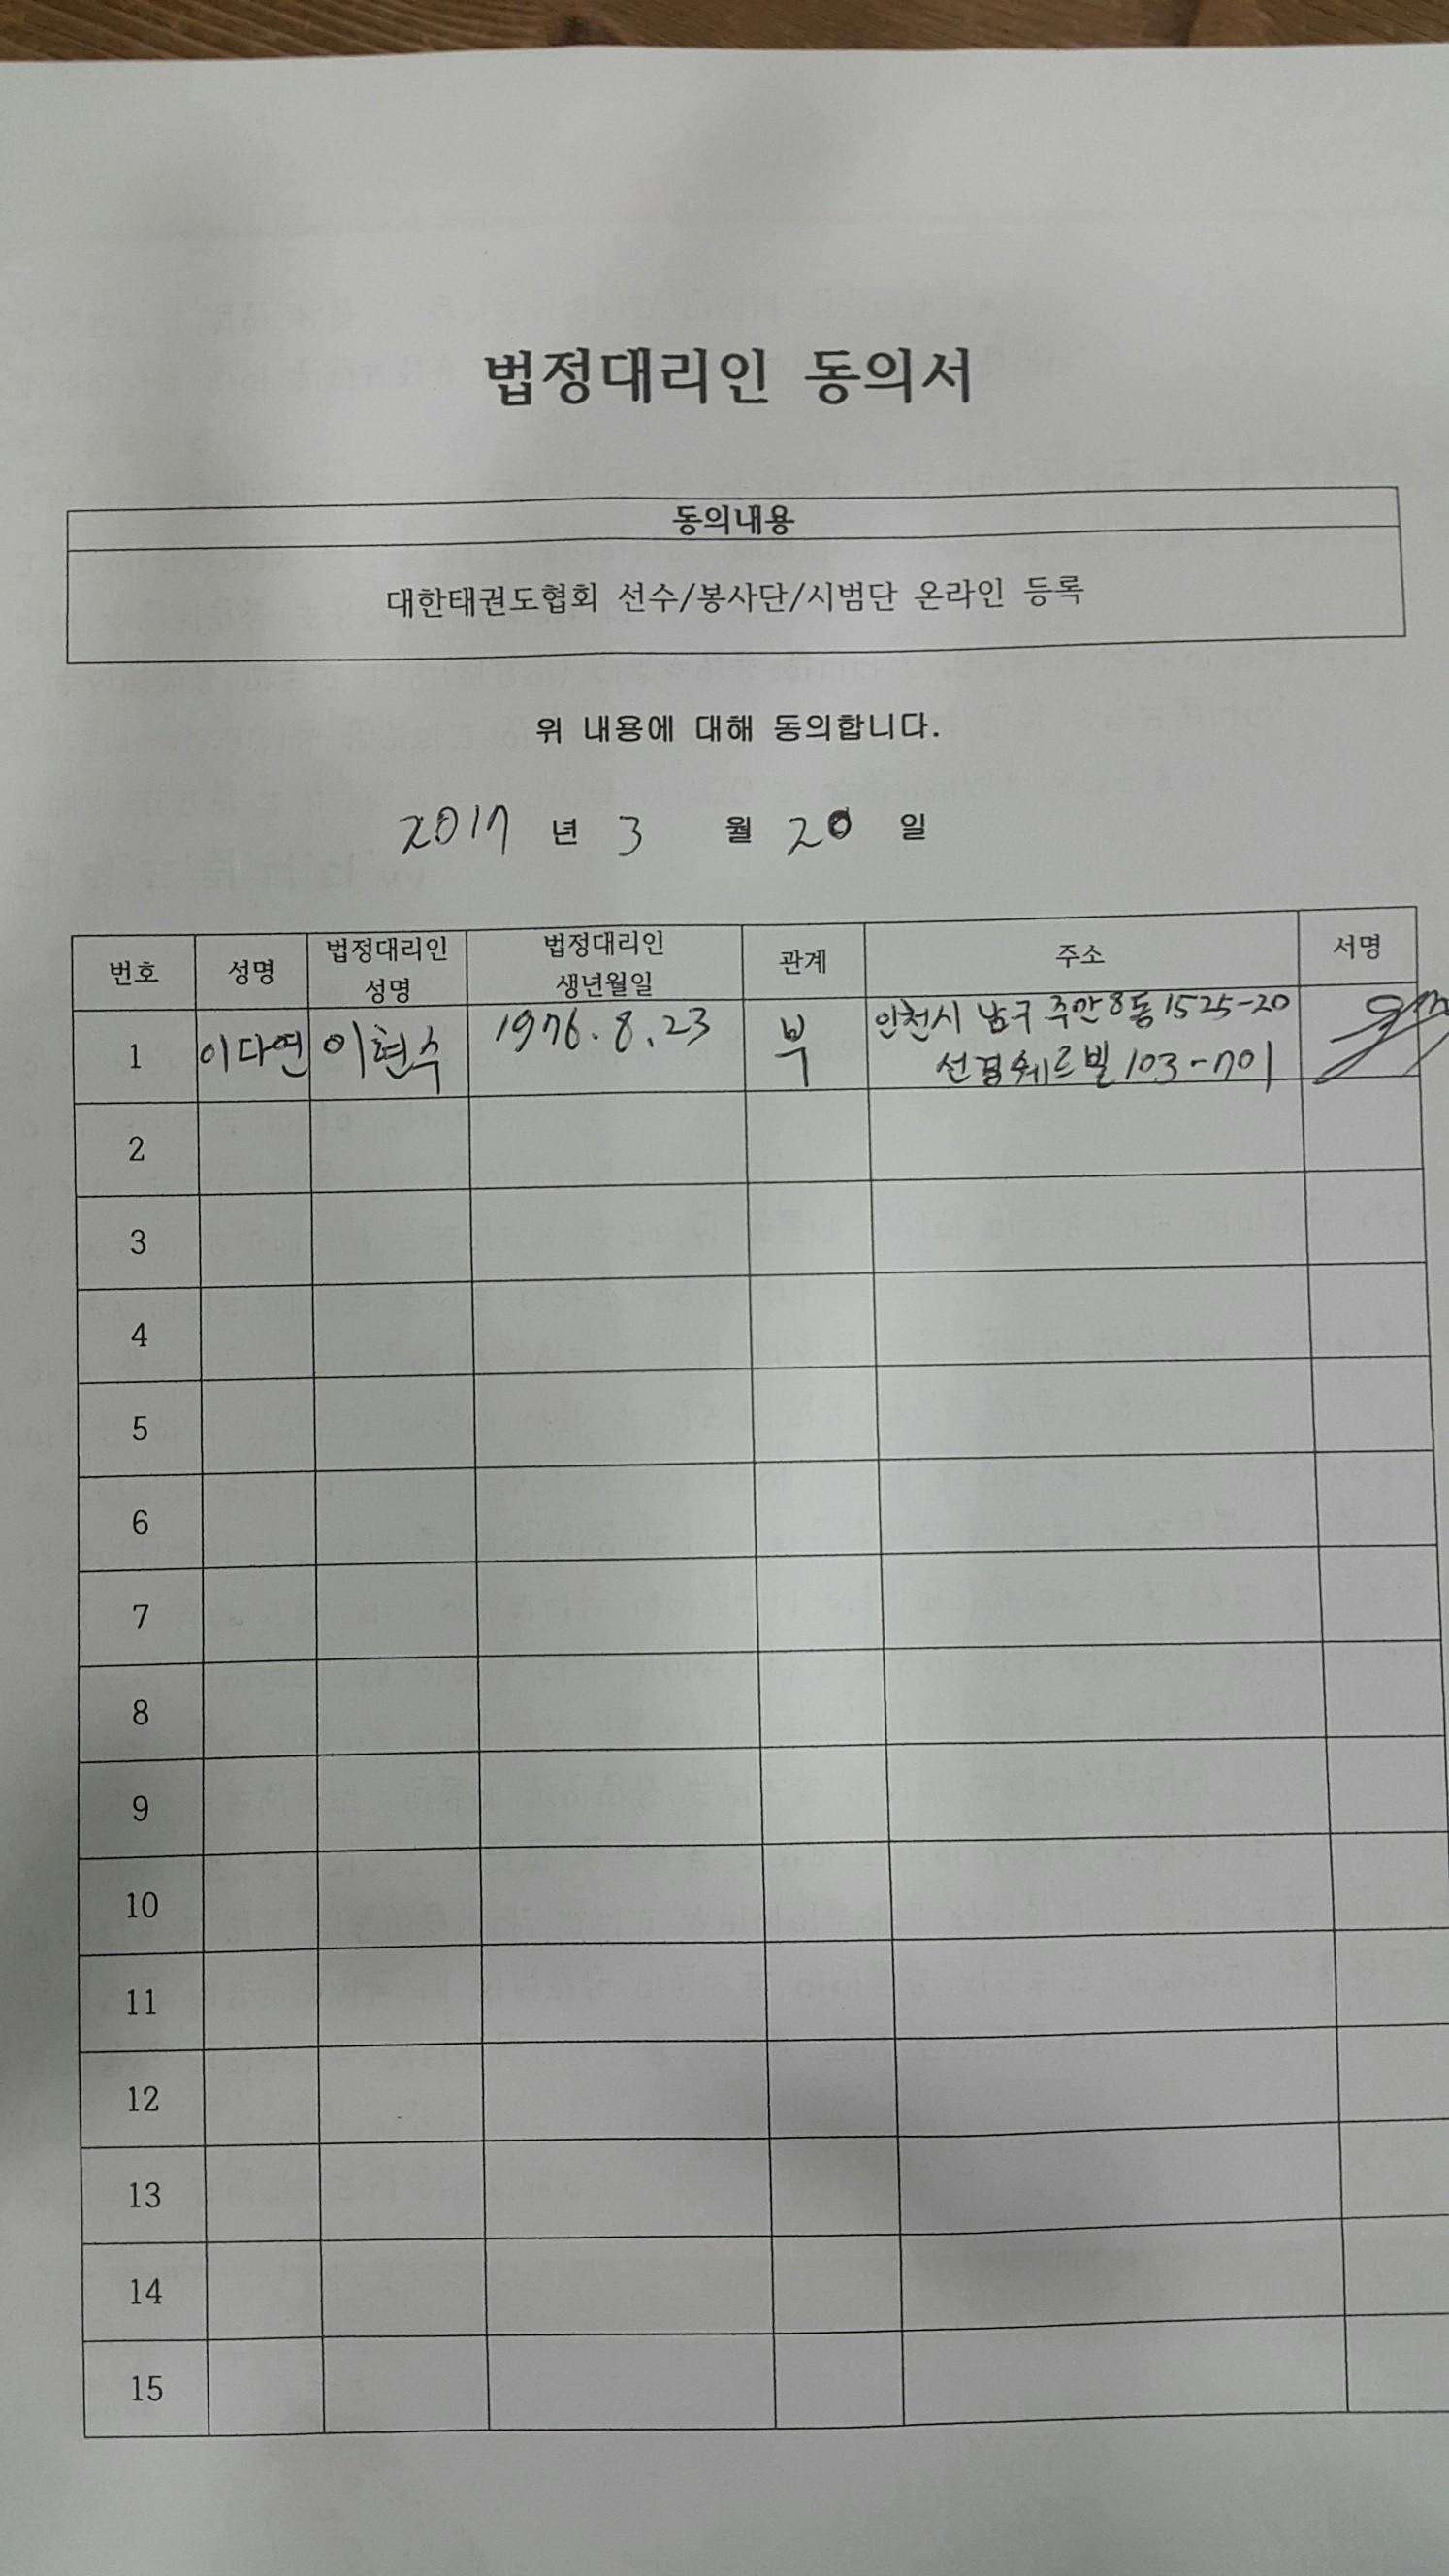 법정대리인 동의서
동의내용
대한태권도협회 선수/봉사단/시범단 온라인 등록
위 내용에 대해 동의합니다.
2017 년 3 월 20 일
번호 성명 법정대리인 성명 법정대리인 생년월일 관계 주소 서명
1 이다연 이현수 1976.8.23 부 인천시 남구 주안8동 1525-20
선경웨르빌 103-701
2
3
4
5
6
7
8
9
10
11
12
13
14
15